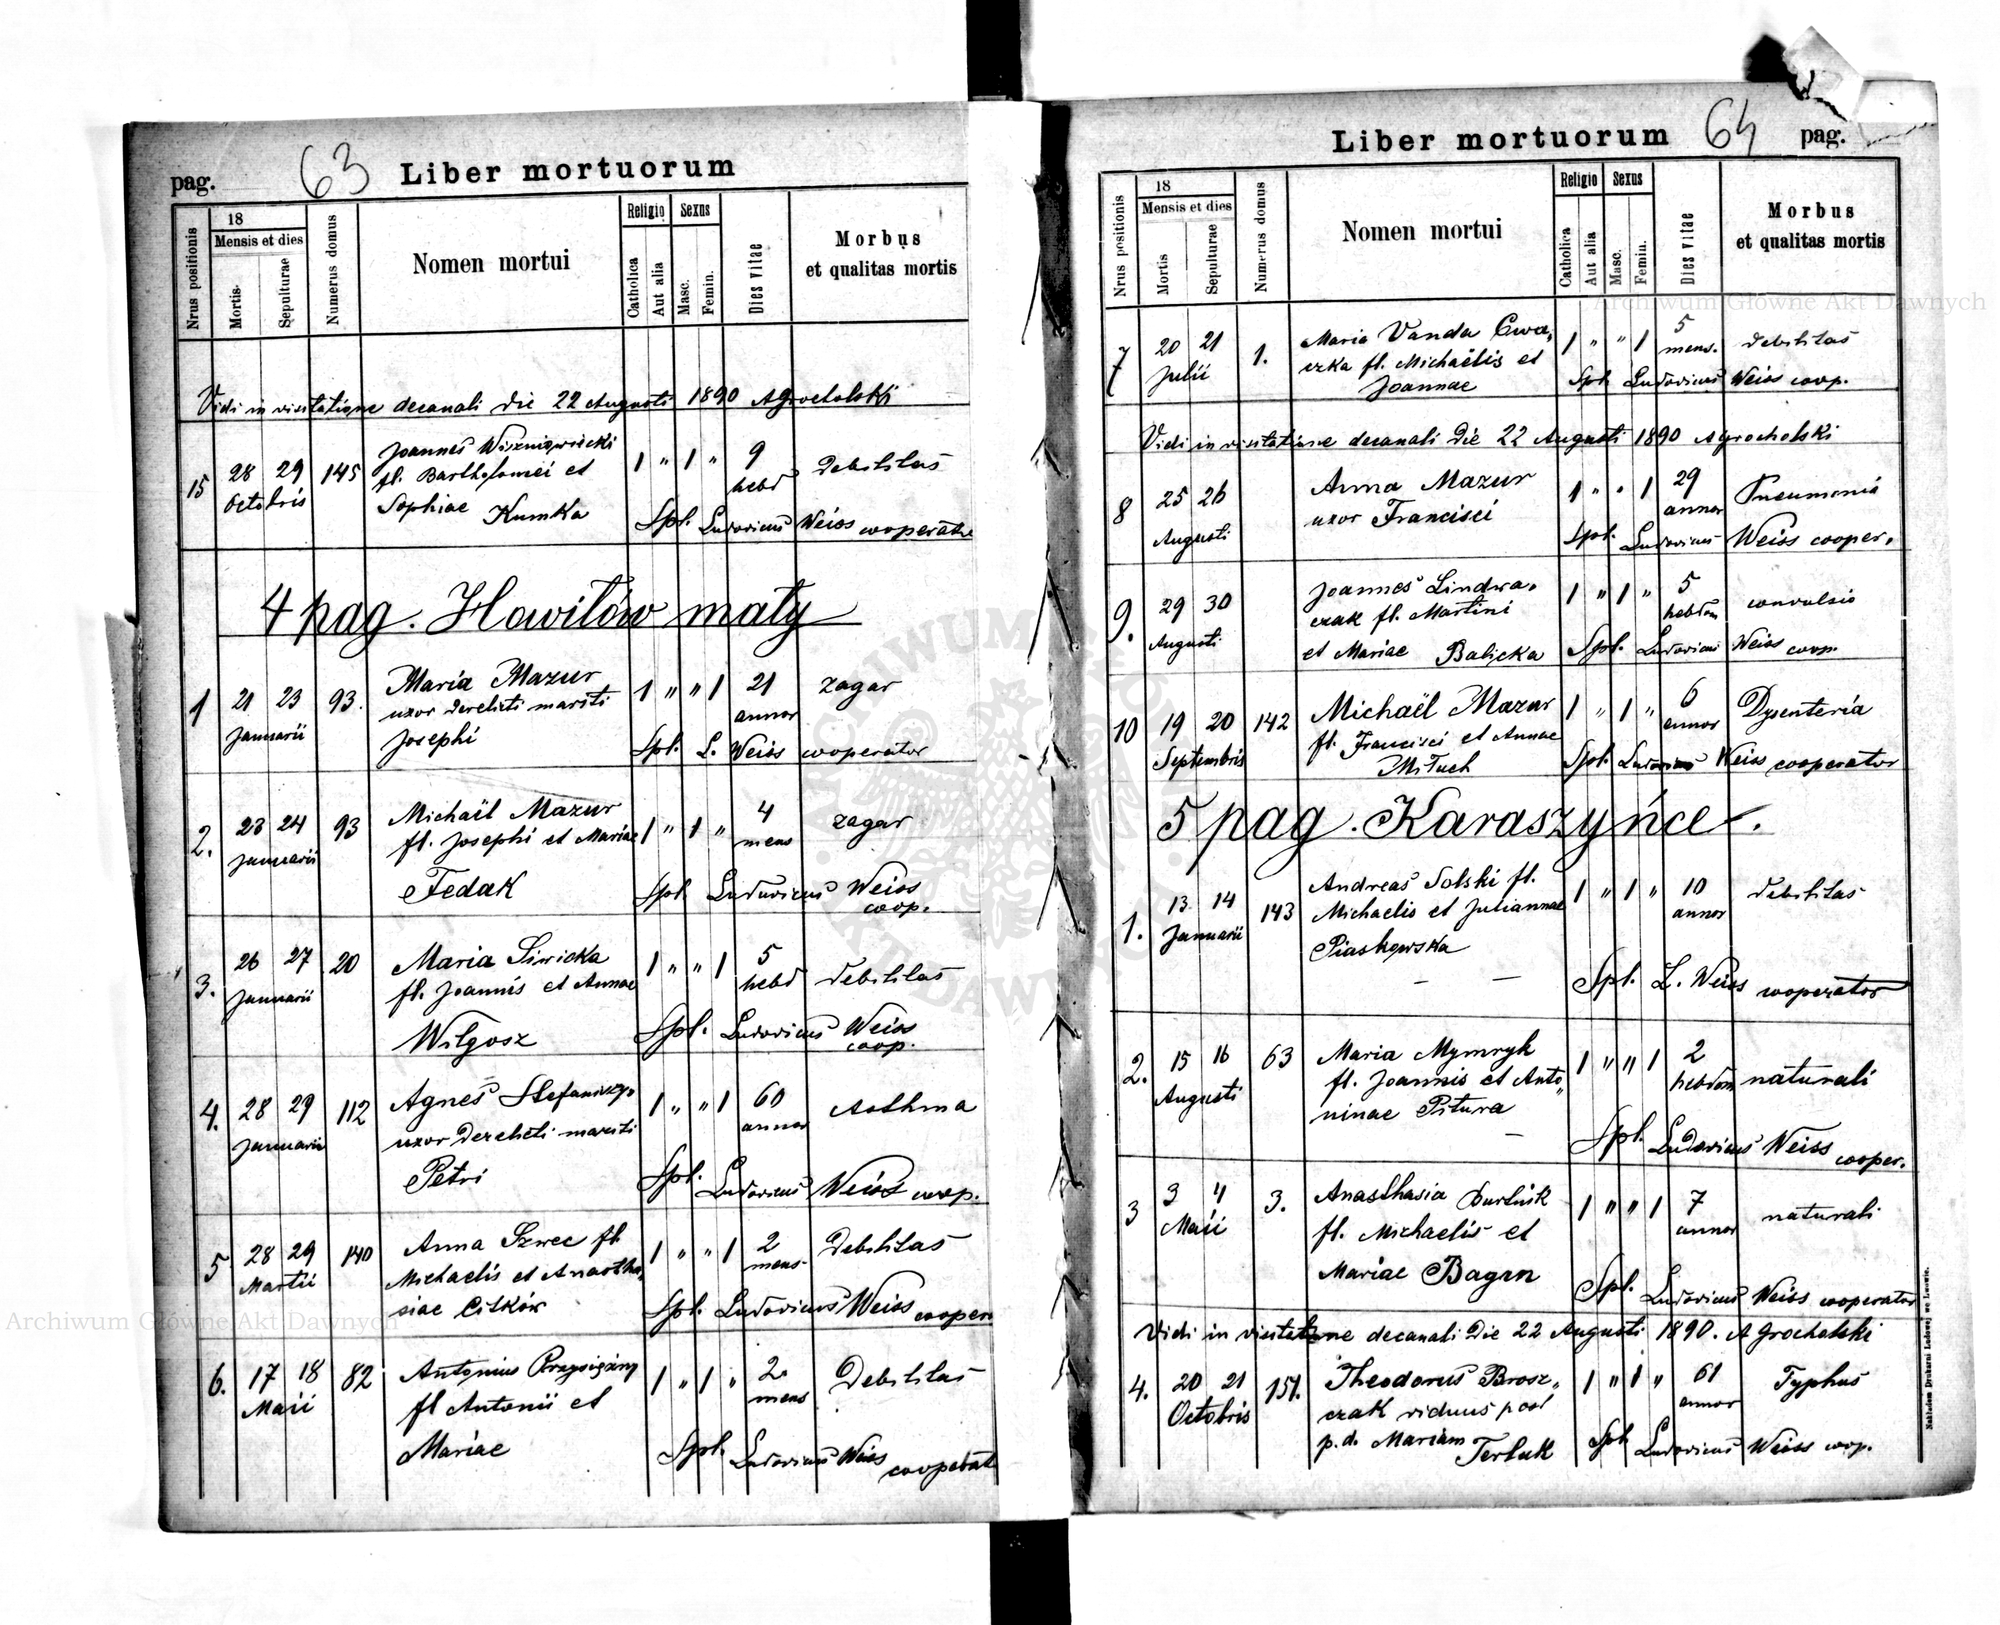 pag. 63 Liber mortuorum
Nrus positionis
18
Mensis et dies
Mortis
Sepulturae
Numerus domus
Nomen mortui
Religio
Catholica
Aut alia
Sexus
Masc.
Femin.
Dies vitae
Morbus
et qualitas mortis
Vidi in visitatione decanali die 22 Augusti 1890 AGrocholski
15 28 29 145 Joannes Wiszniowiecki 1 " 1 " 9 debilitas
Octobris fl. Bartholomei et hebd
Sophiae Kumka Spl. Ludovicus Weiss cooperator
4 pag. Howiłów mały
1 21 23 93. Maria Mazur 1 " " 1 21 zagar
Januarii uxor derelicti mariti annor
Josephi Spl. L. Weiss cooperator
2. 23 24 93 Michaël Mazur 1 " 1 " 4 zagar
Januarii fl. Josephi et Mariae mens
Fedak Spl. Ludovicus Weiss
coop.
3. 26 27 20 Maria Siwicka 1 " " 1 5 debilitas
Januarii fl. Joannis et Annae hebd
Wilgosz Spl. Ludovicus Weiss
coop.
4. 28 29 112 Agnes 1 " " 1 60 Asthma
Januarii uxor derelicti mariti annor
Petri Spl. Ludovicus Weiss coop.
5 28 29 140 Anna Szwec fl 1 " " 1 2 Debilitas
Martii Michaelis et Anastha, mens
siae Citków Spl. Ludovicus Weiss cooper
6. 17 18 82 Antonius 1 " 1 " 2 Debilitas
Maii fl Antonii et mens
Mariae Spl. Ludovicus Weiss
cooperat
Liber mortuorum 64 pag.
Nrus positionis
18
Mensis et dies
Mortis
Sepulturae
Numerus domus
Nomen mortui
Religio
Catholica
Aut alia
Sexus
Masc.
Femin.
Dies vitae
Morbus
et qualitas mortis
7 20 21 1. Maria Vanda Cwa, 1 " " 1 5 debilitas
Julii czka fl. Michaëlis et mens.
Joannae Spl. Ludovicus Weiss coop.
Vidi in visitatione decanali die 22 Augusti 1890 AGrocholski
8 25 26 Anna Mazur 1 " " 1 29 Pneumonia
Augusti uxor Francisci annor
Spl. Ludovicus Weiss cooper.
9. 29 30 Joannes Lindwa, 1 " 1 " 5 convulsio
Augusti czak fl. Martini hebdom
et Mariae Balicka Spl. Ludovicus Weiss coop.
10 19 20 142 Michaël Mazur 1 " 1 " 6 Dysenteria
Septembris fl. Francisci et Annae annor
Miłuch Spl. Ludovicus Weiss cooperator
5 pag. Karaszyńce.
1. 13 14 143 Andreas Solski fl. 1 " 1 " 10 debilitas
Januarii Michaelis et Juliannae annor
Piaskowska
Spl. L. Weiss cooperator
2. 15 16 63 Maria Mymryk 1 " " 1 2 naturali
Augusti fl. Joannis et Anto, hebdom
ninae Pitura
Spl. Ludovicus Weiss cooper.
3 3 4 3. Anasthasia Burlik 1 " " 1 7 naturali
Maii fl. Michaelis et annor
Mariae Bagan Spl. Ludovicus Weiss cooperator
Vidi in visitatione decanali die 22 Augusti 1890. AGrocholski
4. 20 21 151. Theodorus Brosz, 1 " 1 " 61 Typhus
Octobris czak viduus post annor
p. d. Mariam Terluk Spl. Ludovicus Weiss coop.
Nakładem Drukarni Ludowej we Lwowie.
Archiwum Główne Akt Dawnych
Archiwum Główne Akt Dawnych
ARCHIWUM GŁÓWNE AKT DAWNYCH